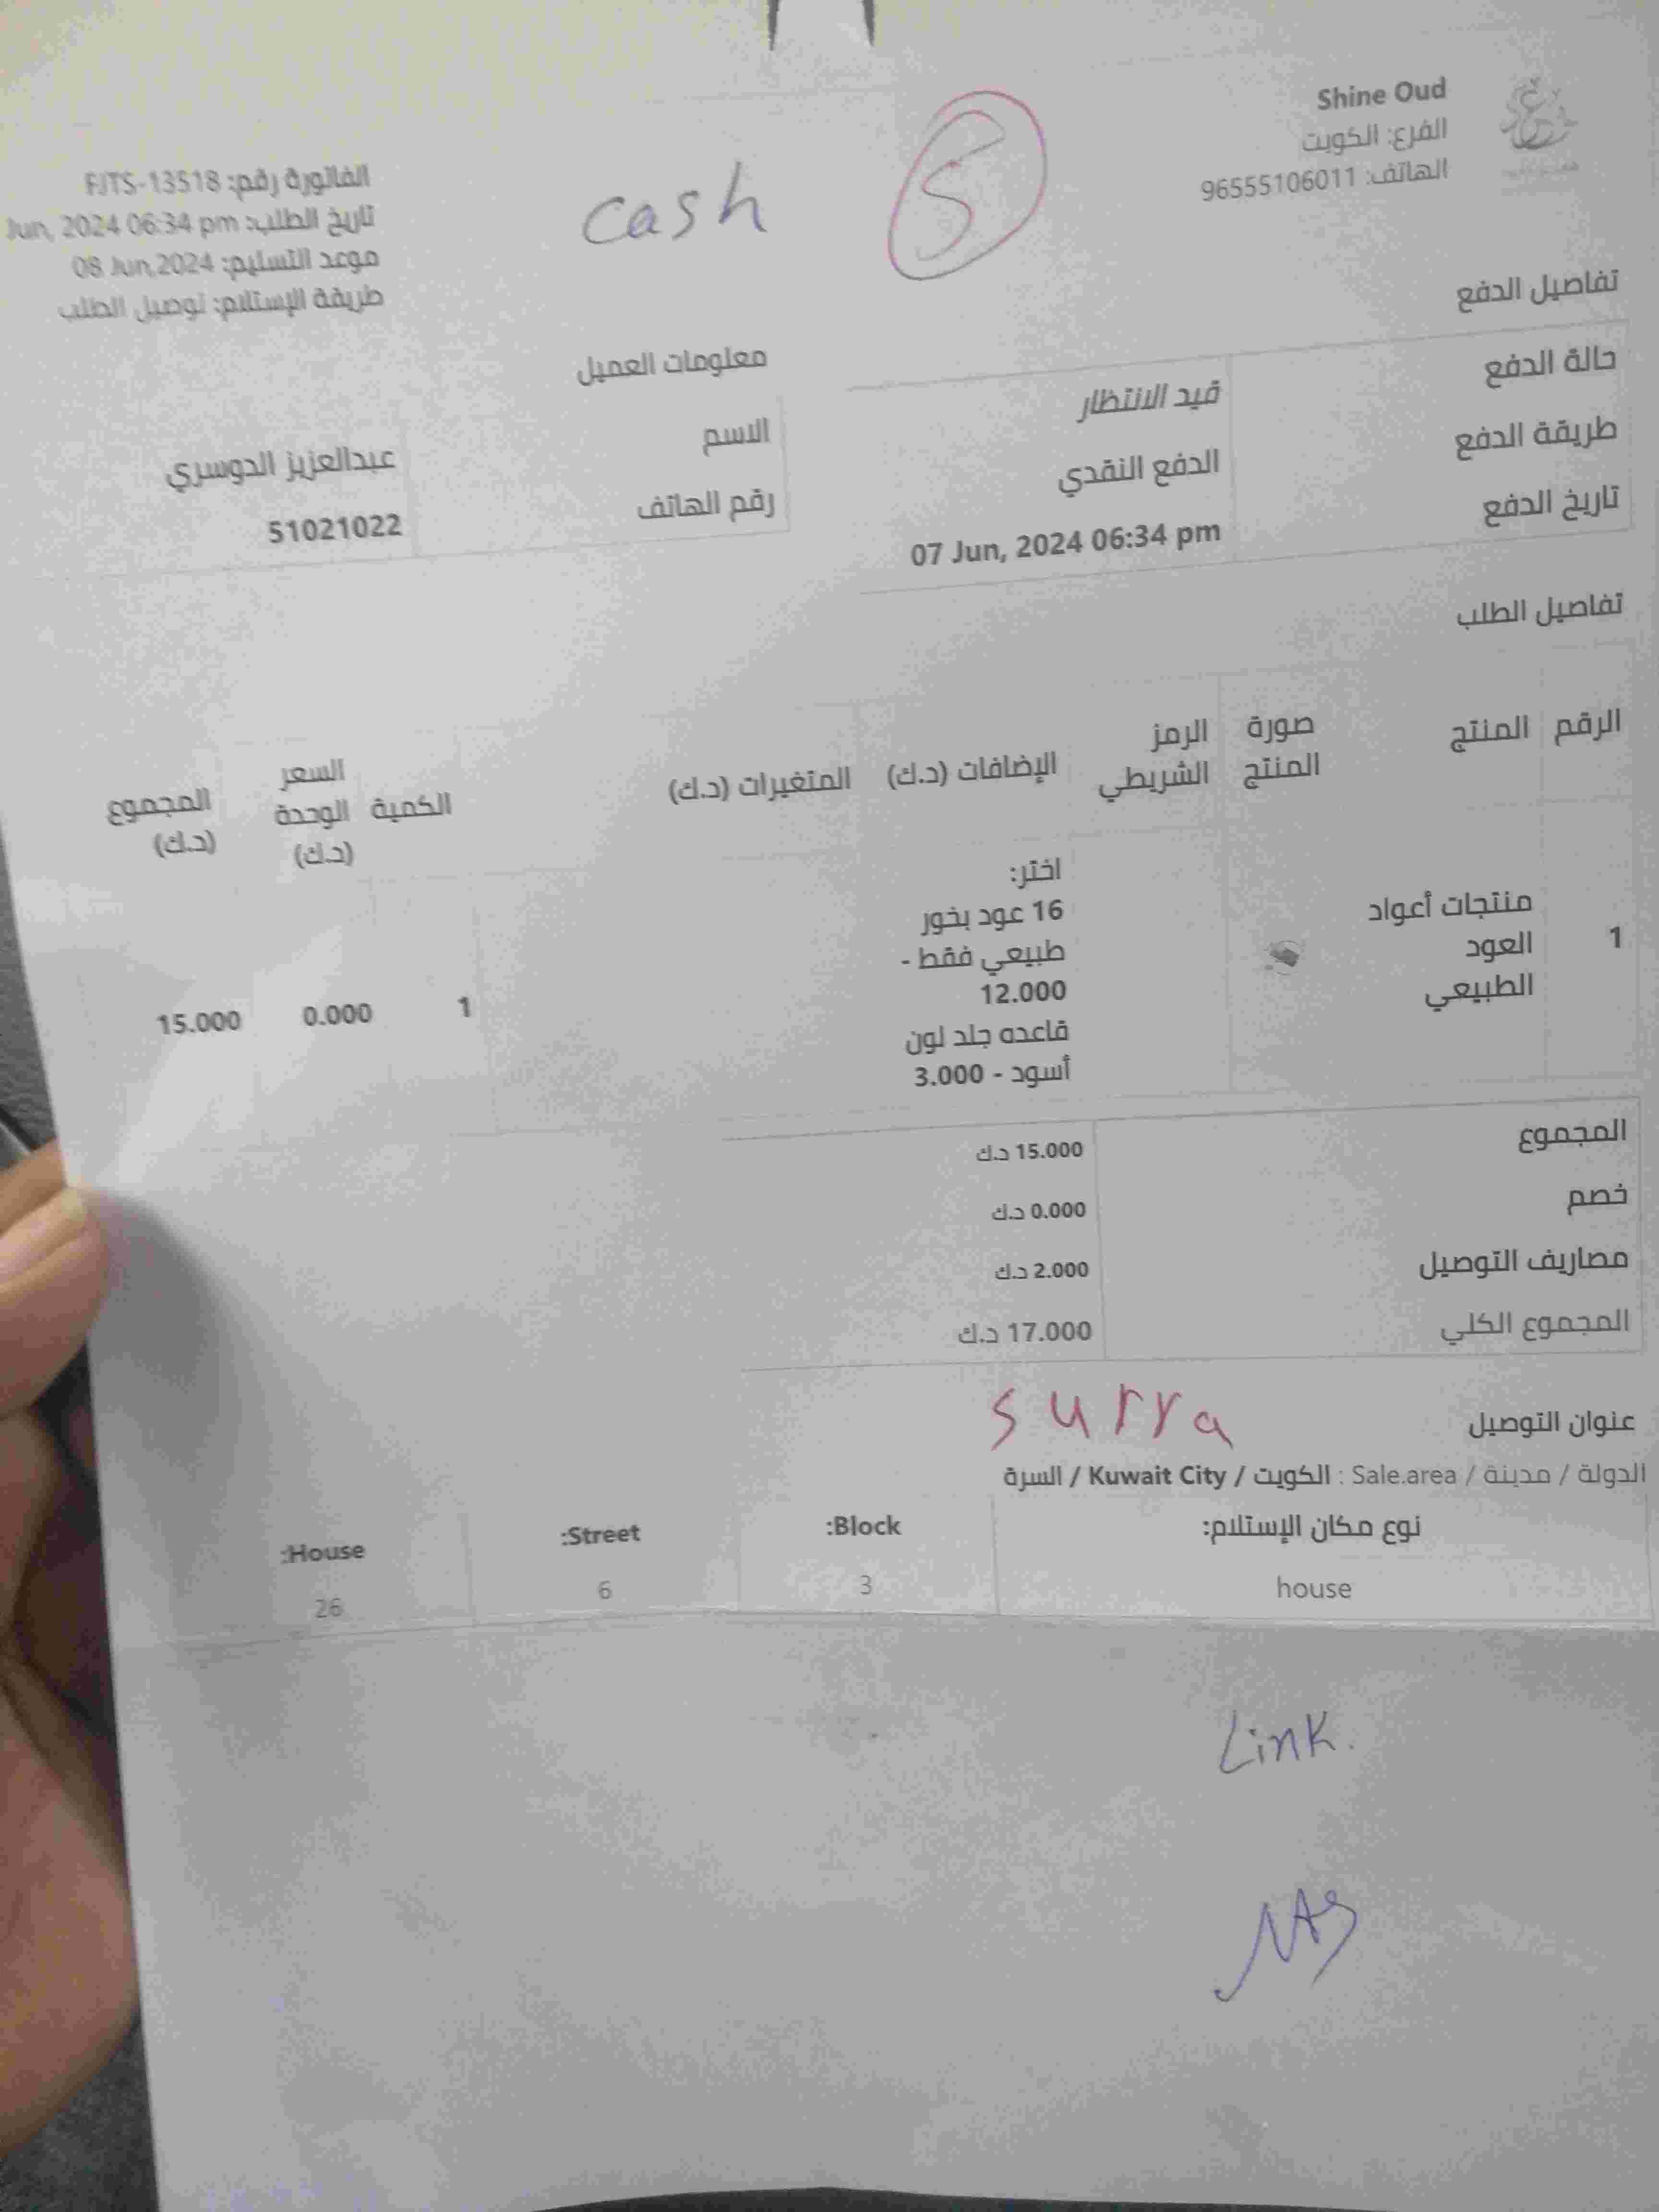 Shine Oud
الفرع: الكويت
الهاتف: 96555106011
5
cash
الفاتورة رقم: FJTS-13518
تاريخ الطلب: Jun, 2024 06:34 pm
موعد التسليم: 08 Jun,2024
طريقة الإستلام: توصيل الطلب
تفاصيل الدفع
حالة الدفع قيد الانتظار
طريقة الدفع الدفع النقدي
تاريخ الدفع 07 Jun, 2024 06:34 pm
معلومات العميل
الاسم عبدالعزيز الدوسري
رقم الهاتف 51021022
تفاصيل الطلب
الرقم المنتج صورة المنتج الرمز الشريطي الإضافات (د.ك) المتغيرات (د.ك) الكمية السعر الوحدة (د.ك) المجموع (د.ك)
1 منتجات أعواد العود الطبيعي
اختر:
16 عود بخور
طبيعي فقط -
12.000
قاعده جلد لون
أسود - 3.000
1 0.000 15.000
المجموع 15.000 د.ك
خصم 0.000 د.ك
مصاريف التوصيل 2.000 د.ك
المجموع الكلي 17.000 د.ك
surra
عنوان التوصيل
الدولة / مدينة / Sale.area : الكويت / Kuwait City / السرة
نوع مكان الإستلام: Block: Street: House:
house 3 6 26
Link.